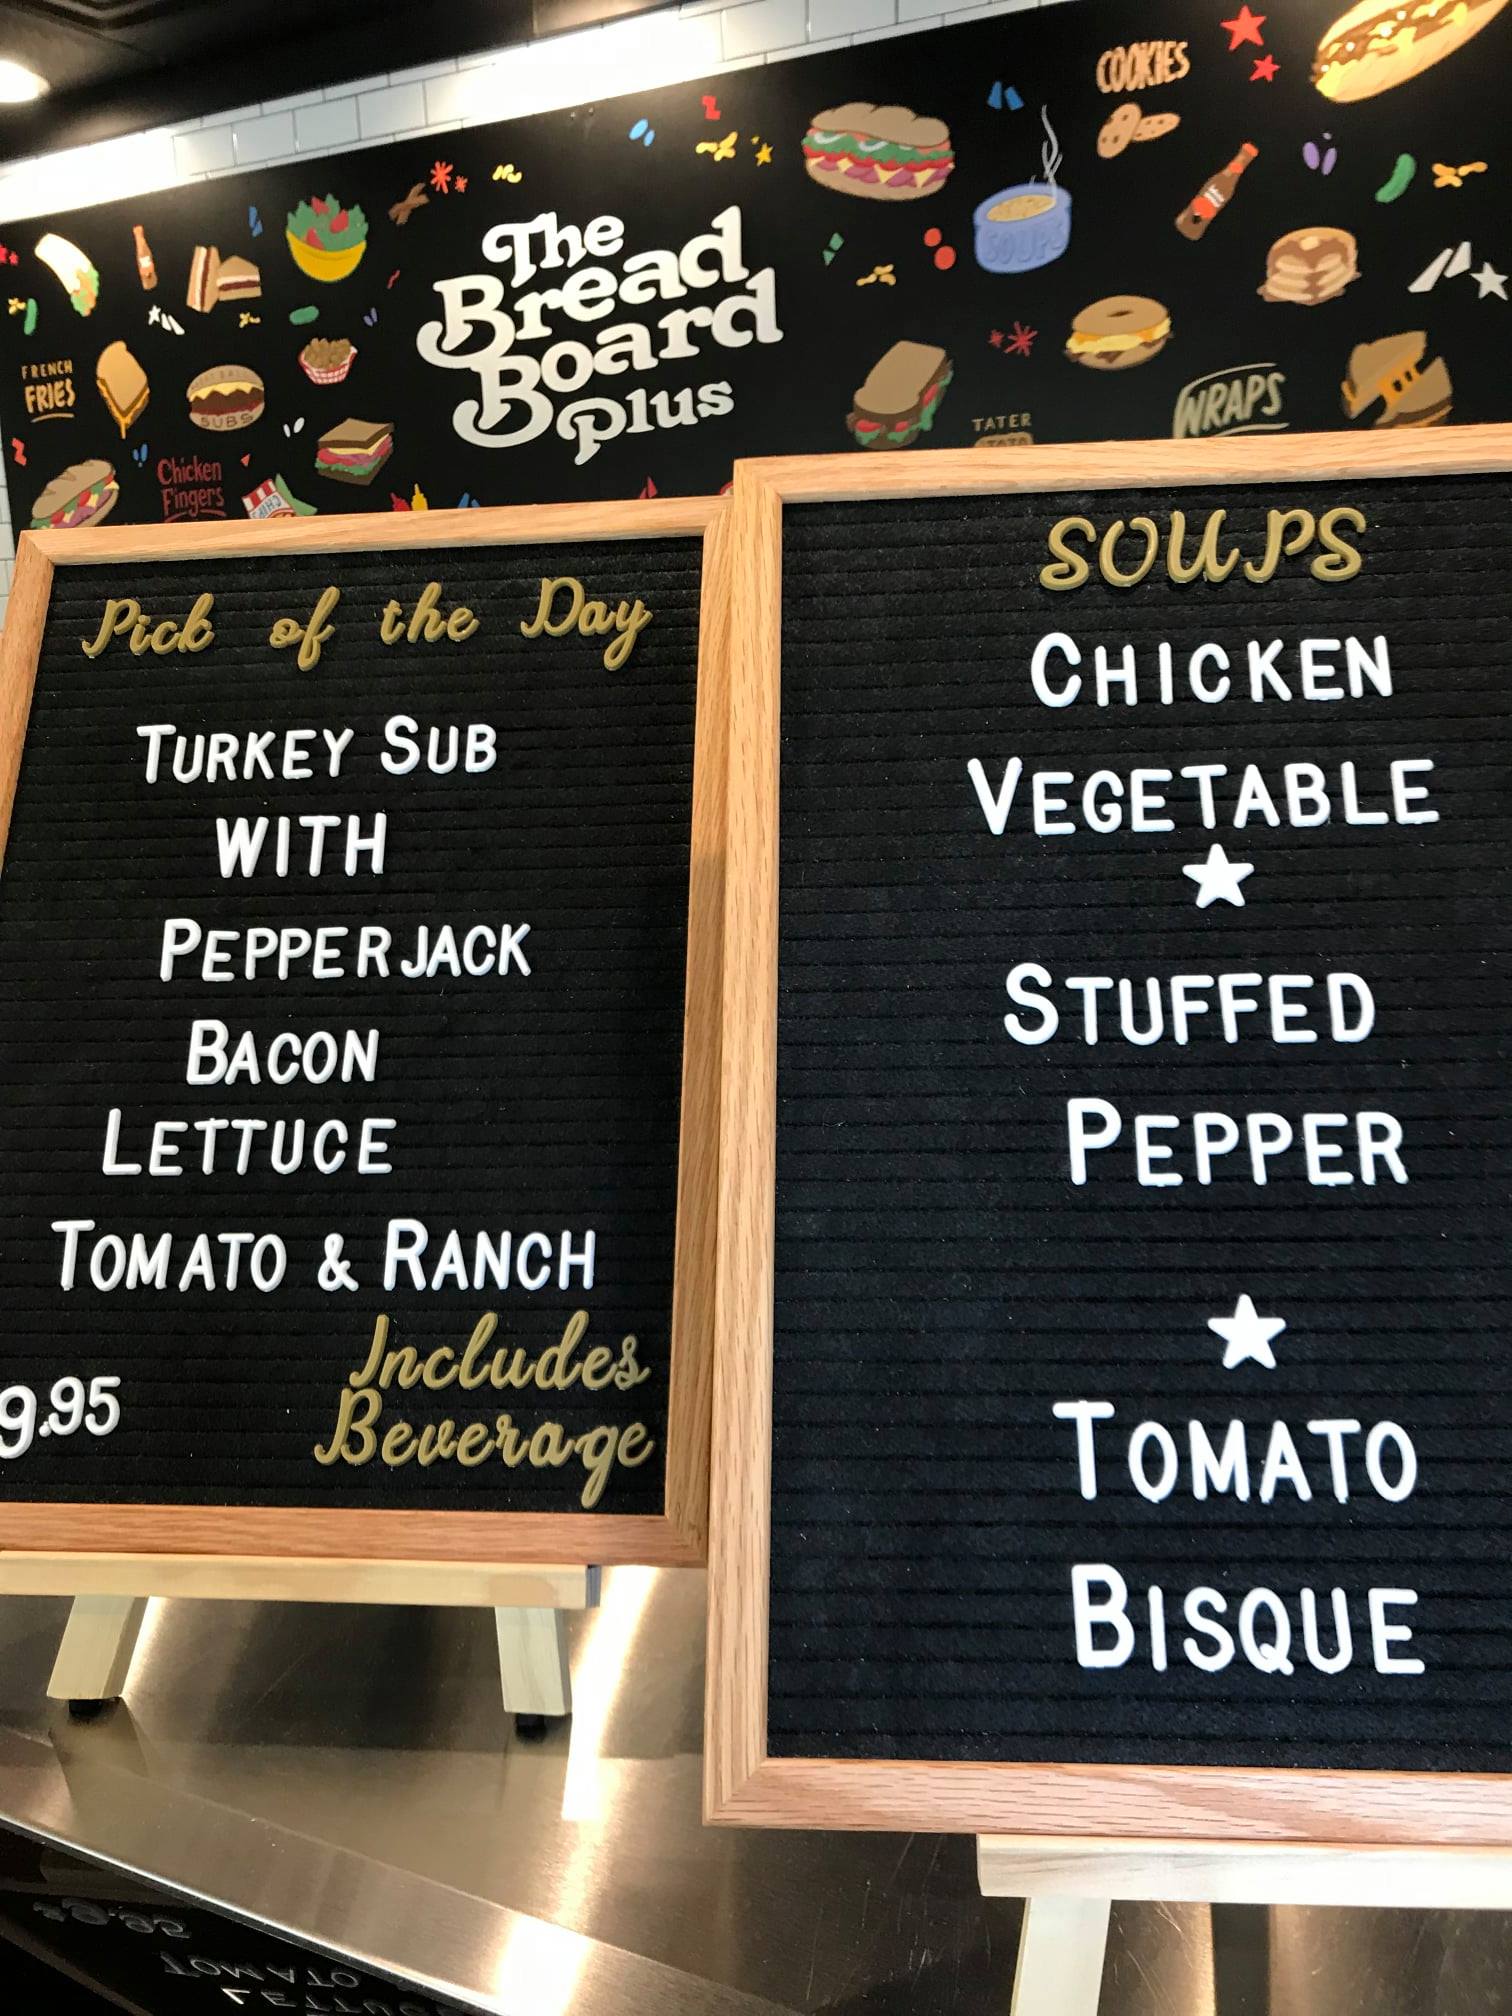 COOKIES
The
Bread
Board
Plus
SOUPS
FRENCH
FRIES
SUBS
Chicken
Fingers
CHIPS
TATER
WRAPS
Pick of the Day
TURKEY SUB
WITH
PEPPERJACK
BACON
LETTUCE
TOMATO & RANCH
9.95
Includes
Beverage
SOUPS
CHICKEN
VEGETABLE
STUFFED
PEPPER
TOMATO
BISQUE
$9.95
TOMATO